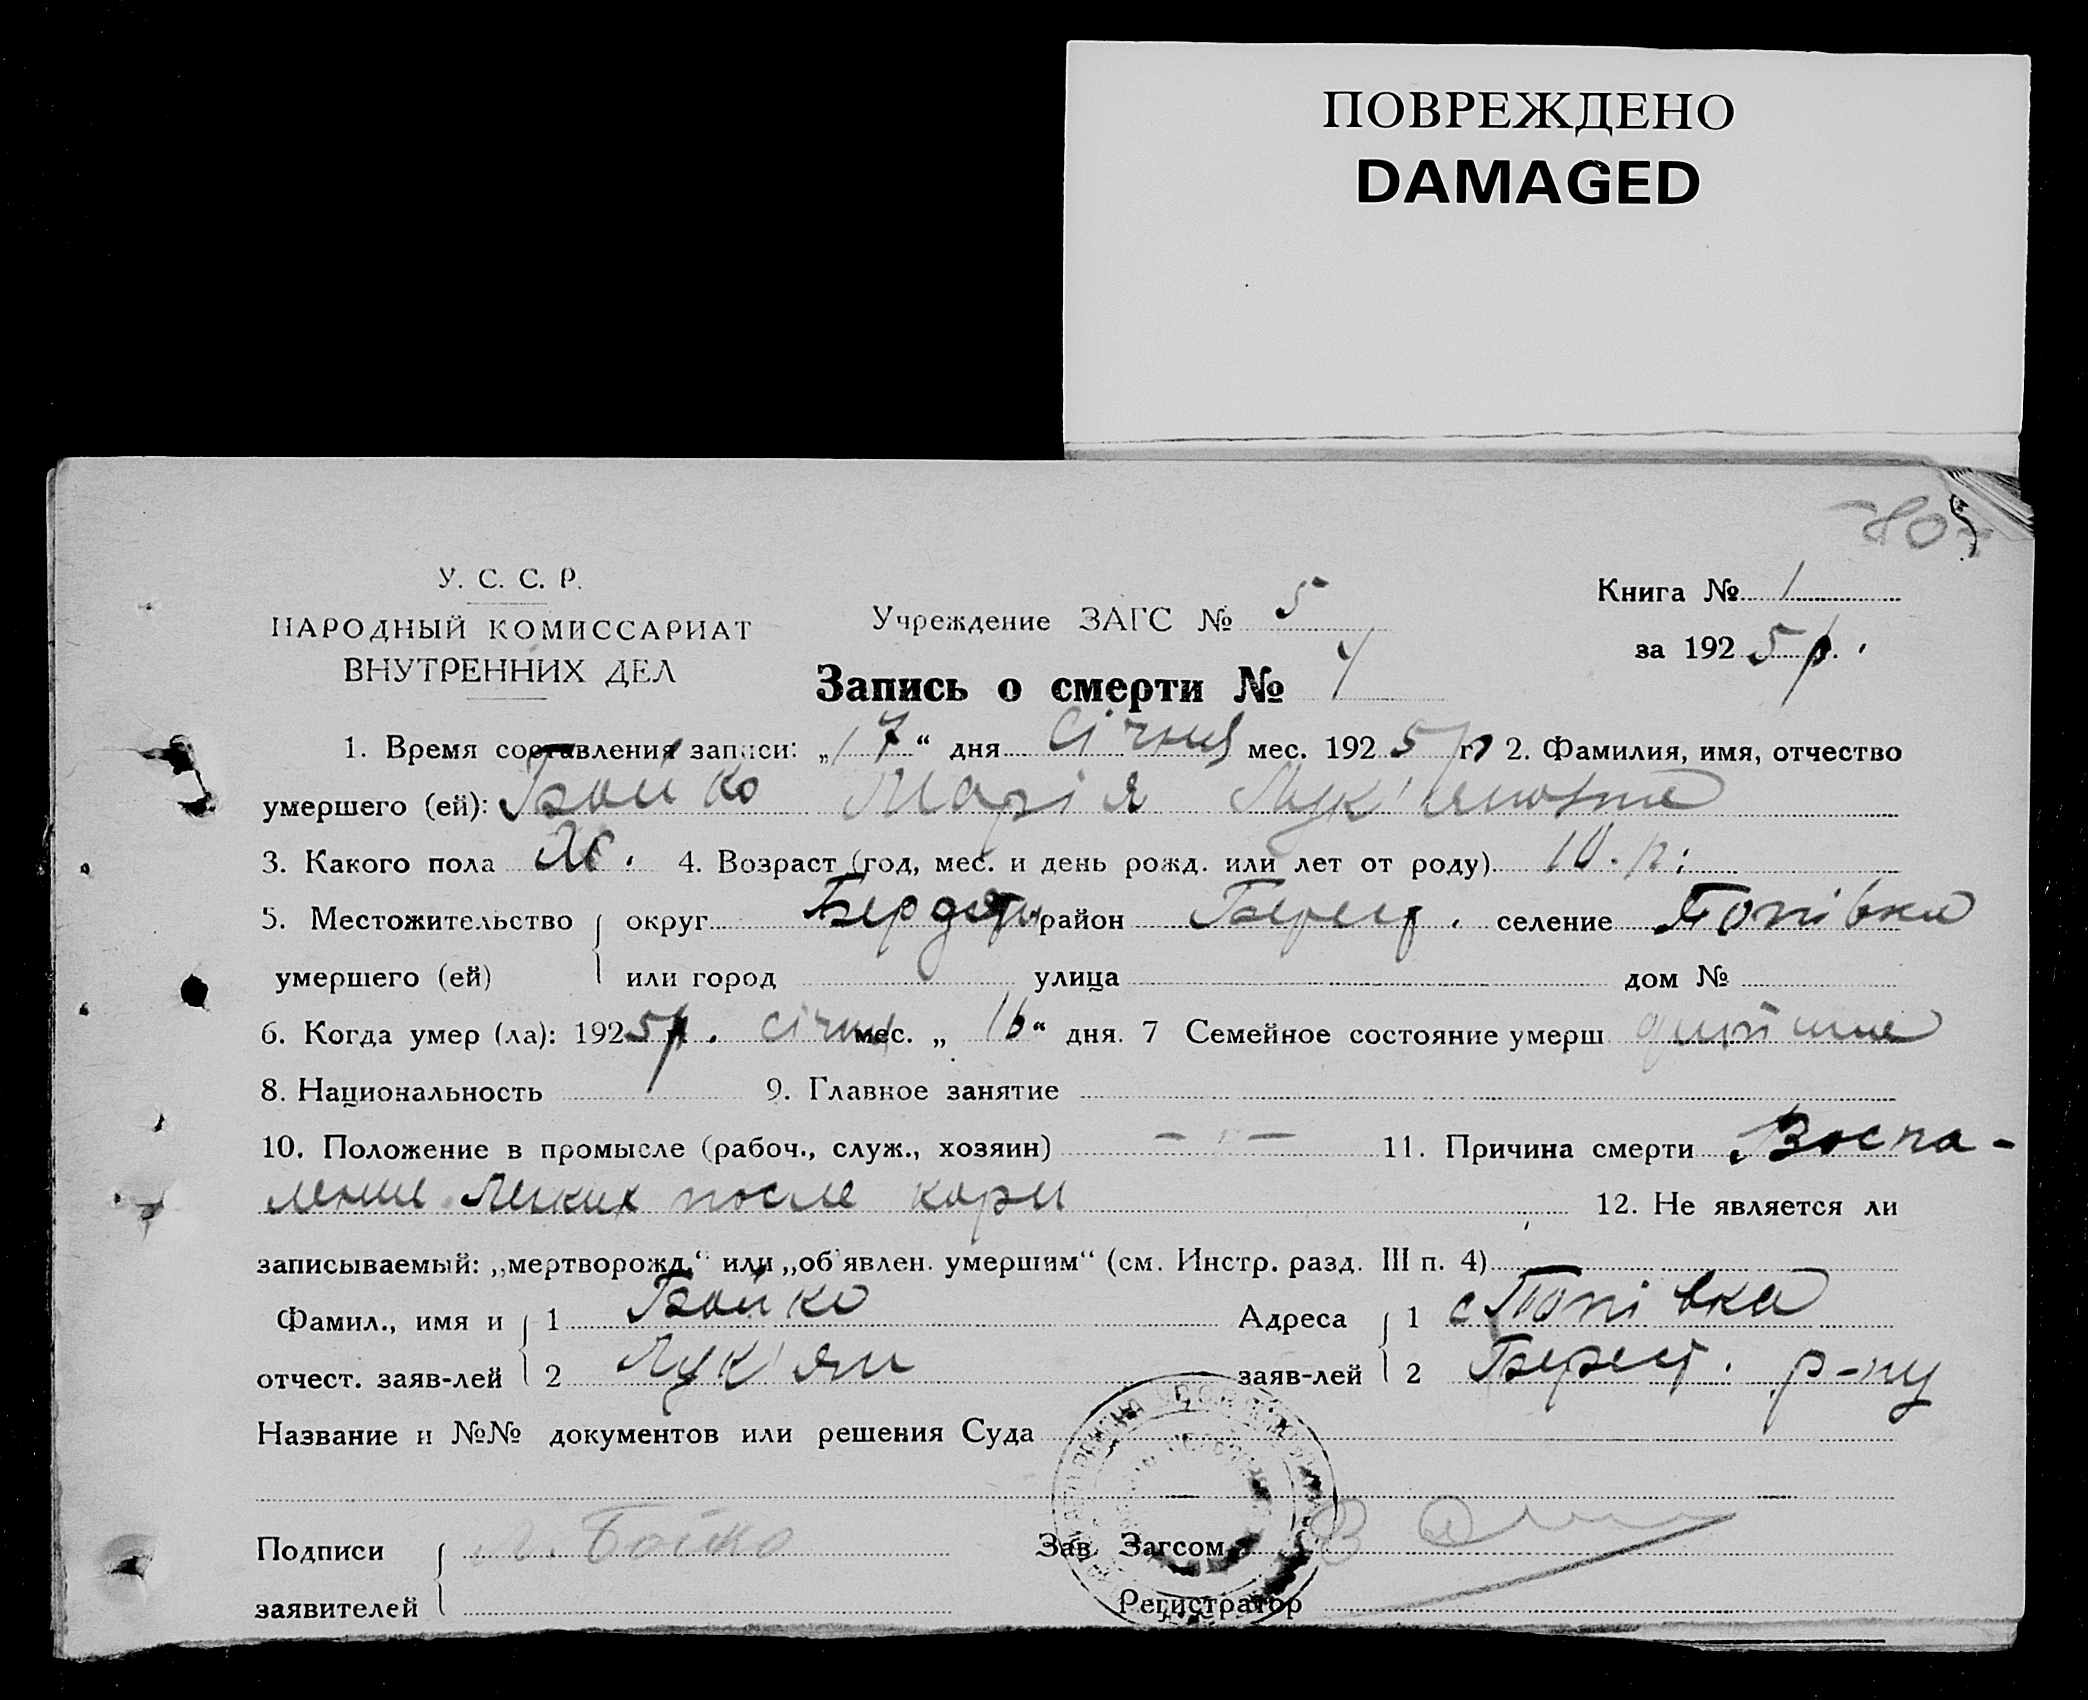 ПОВРЕЖДЕНО
DAMAGED
У. С. С. Р.
НАРОДНЫЙ КОМИССАРИАТ
ВНУТРЕННИХ ДЕЛ
Учреждение ЗАГС № 5
Книга № 1
за 1925 р.
Запись о смерти №
1. Время составления записи: „17“ дня Січня мес. 1925 р 2. Фамилия, имя, отчество
умершего (ей): Бойко Марія Лук'яновна
3. Какого пола Ж. 4. Возраст (год, мес. и день рожд. или лет от роду) 10. р.
5. Местожительство округ район Берест. селение Попівка
умершего (ей) или город улица дом №
6. Когда умер (ла): 1925 р. січня мес. „16“ дня. 7 Семейное состояние умерш
8. Национальность 9. Главное занятие
10. Положение в промысле (рабоч., служ., хозяин) — „ — 11. Причина смерти Воспа-
ление легких после кори 12. Не является ли
записываемый: „мертворожд.“ или „об'явлен. умершим“ (см. Инстр. разд. III п. 4)
Фамил., имя и 1 Бойко Адреса 1 с Попівка
отчест. заяв-лей 2 Лук'ян заяв-лей 2 Берест. р-ну
Название и №№ документов или решения Суда
Подписи Л. Бойко Зав. Загсом
заявителей Регистратор